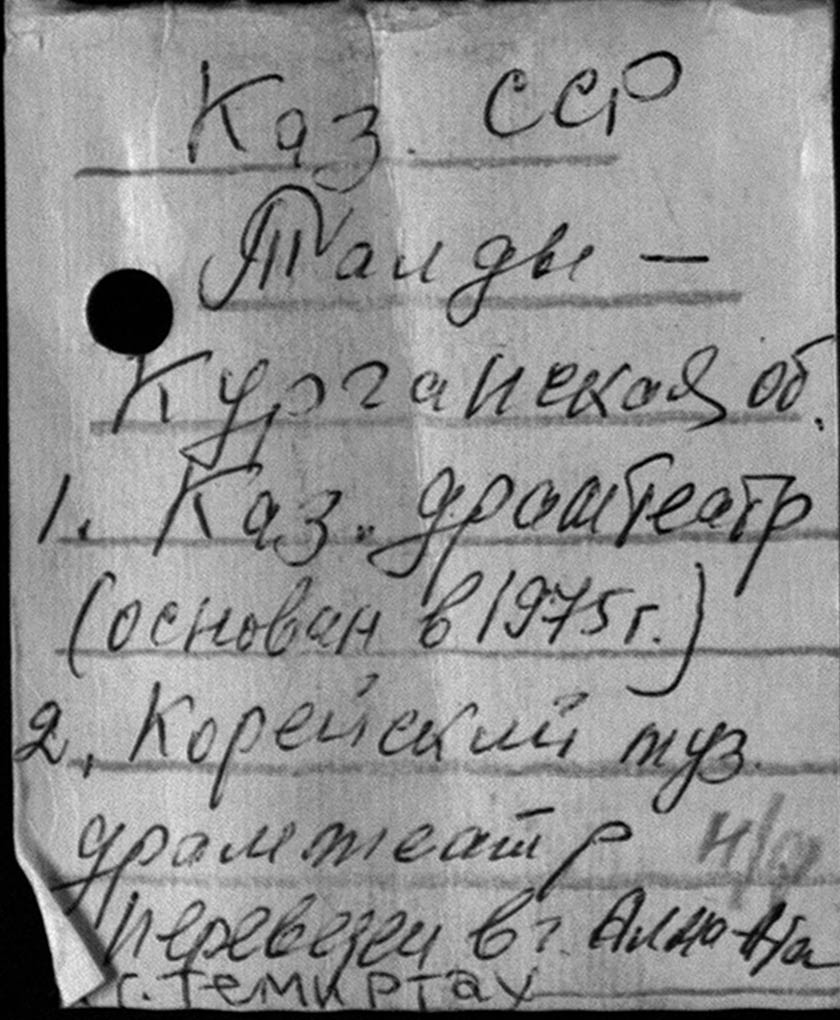 Каз. ССР
Талды –
Курганская об.
1. Каз. драмтеатр
(основан в 1975 г.)
2. Корейский муз.
драмтеатр н/д
Перевезен в г. Алма-Ата
г. Темиртау